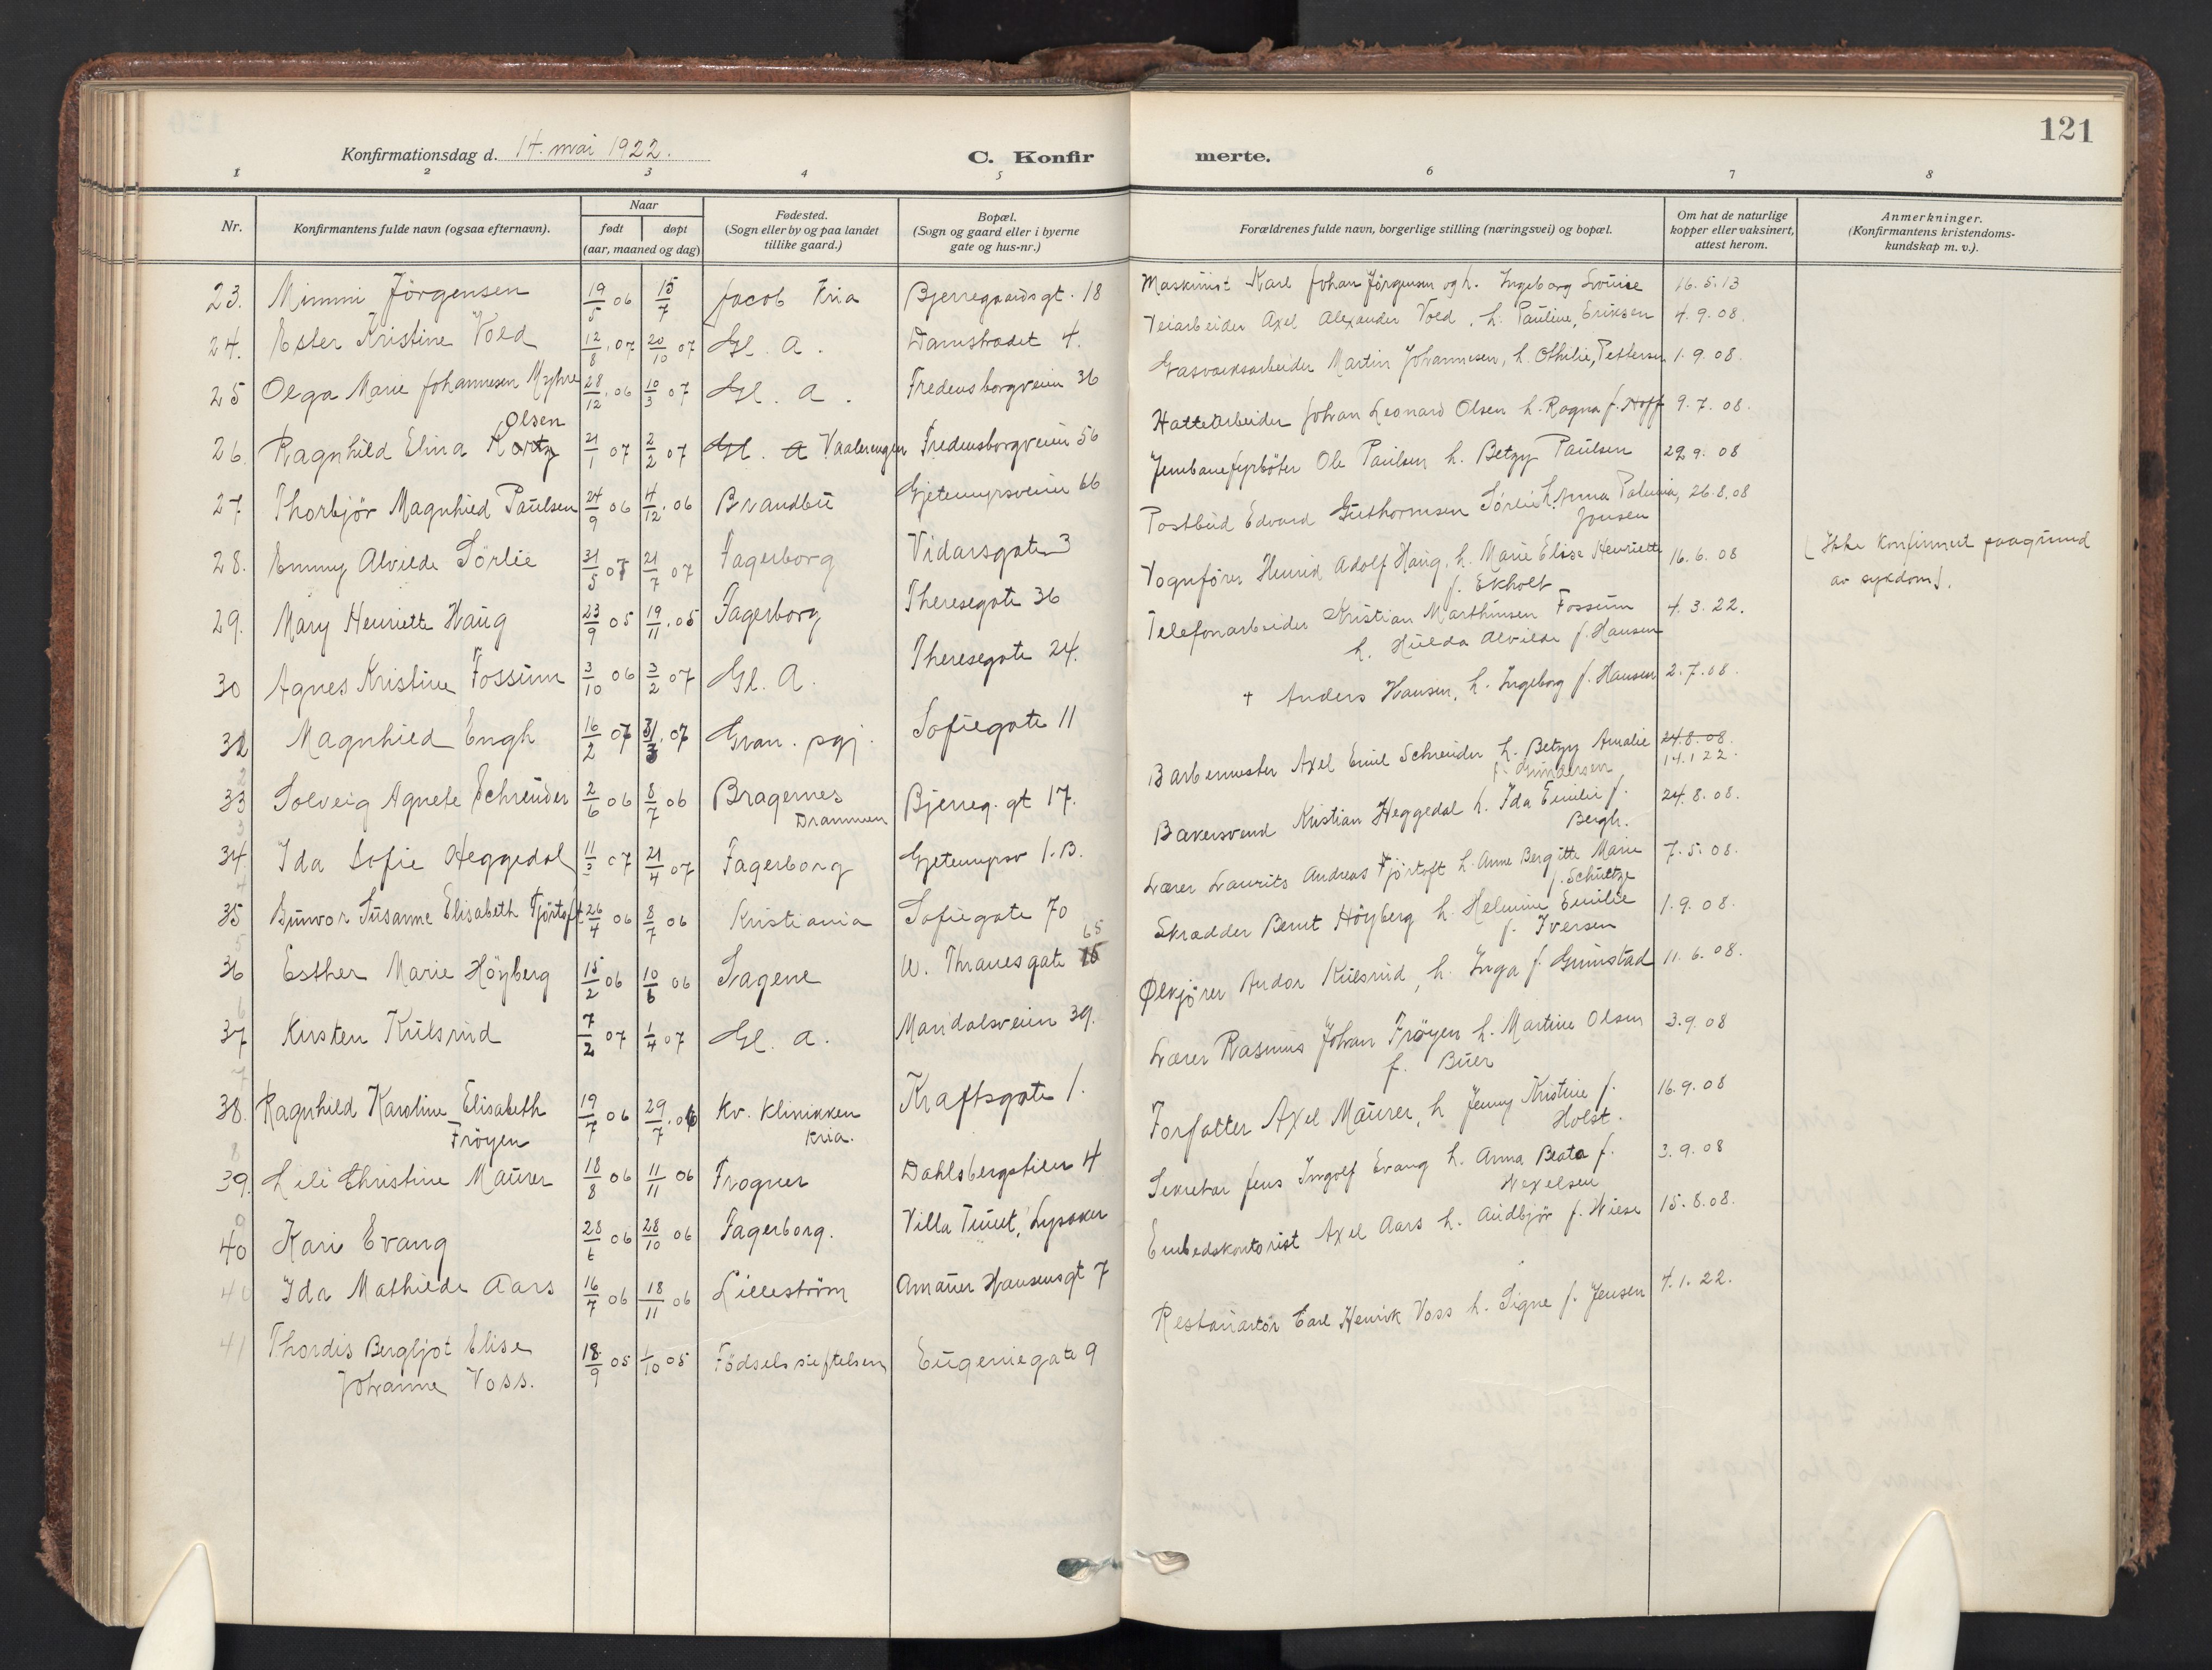 121
Konfirmationsdag d. 14. mai 1922.
C. Konfir merte.
1 2 3 4 5 6 7 8
Nr.
Konfirmantens fulde navn (ogsaa efternavn).
Naar
født døpt
(aar, maaned og dag)
Fødested.
(Sogn eller by og paa landet
tillike gaard.)
Bopæl.
(Sogn og gaard eller i byerne
gate og hus-nr.)
Forældrenes fulde navn, borgerlige stilling (næringsvei) og bopæl.
Om hat de naturlige
kopper eller vaksinert,
attest herom.
Anmerkninger.
(Konfirmantens kristendoms-
kundskap m. v.).
23. Mimmi Jörgensen 19/5 06 15/7 Jacob Kria Bjerregaardsgt. 18 Maskinist Karl Johan Jörgensen og h. Ingeborg Louise 16.5.13
24. Ester Kristine Vold 12/8 07 20/10 07 Gl. A. Damstrædet 4. Veiarbeider Axel Alexander Vold, h. Pauline, Eriksen 4.9.08.
25 Olga Marie Johannesen Myhre 28/12 06 10/3 07 Gl. A. Fredensborgveien 36 Gasværksarbeider Martin Johannesen, h. Othilie, Pettersen 1.9.08.
Olsen
26. Ragnhild Elina 21/1 07 2/2 07 Gl. A Vaalerengen Fredensborgveien 56 Hattearbeider Johan Leonard Olsen h. Ragna f. Hoff 9.7.08.
27 Thorbjör Magnhild Paulsen 24/9 06 4/12. 06 Brandbu Gjetemyrsveien 66 Jernbanefyrböter Ole Paulsen h. Betzy Paulsen 29.9.08
28. Emmy Alvilde Sörlie 31/5 07 21/7 07 Fagerborg Vidarsgate 3 Postbud Edvard Guthormsen Sörlie h. Anna 26.8.08
Jonsen
(Ikke konfirmert paagrund
av sykdom).
29. Mary Henriette Haug 23/9 05 19/11. 05 Fagerborg Theresegate 36 Vognförer Henrik Adolf Haug, h. Marie Elise Henriette 16.6.08
f. Ekholt
30 Agnes Kristine Fossum 3/10 06 3/2 07 Gl. A. Theresegate 24. Telefonarbeider Kristian Marthinsen Fossum 4.3.22.
h. Hulda Alvilde f. Hansen
31 Magnhild Engh 16/2 07 31/3. 07 Gran. pgj. Sofiegate 11 + Anders Hansen, h. Ingeborg f. Hansen 2.7.08.
33 Solveig Agnete Schreuder 2/6 06 8/7 06 Bragernes Bjerreg. gt 17. Barbermester Axel Emil Schreuder h. Betzy Amalie 24.8.08.
Drammen f. Gundersen 14.1 22.
34 Ida Sofie Heggedal 11/3 07 21/4 07 Fagerborg Gjetemyrsv 1.B. Bakersvend Kristian Heggedal h. Ida Emilie f. 24.8.08.
Bergh.
35 Gunvor Susanne Elisabeth Fjörtoft 26/4 06 8/7 06 Kristiania Sofiegate 70 Lærer Laurits Andreas Fjörtoft h. Anne Bergitte Marie 7.5.08.
f. Schultze
36 Esther Marie Höyberg 15/2 06 10/6 06 Sagene W. Thranesgate 65 Skrædder Bernt Höyberg h. Helmine Emilie 1.9.08.
f. Iversen
37 Kirsten Kulsrud 7/2 07 1/4 07 Gl. A. Maridalsveien 39. Ølkjörer Andor Kulsrud, h. Inga f. Grimstad 11.6.08.
38. Ragnhild Karoline Elisabeth 19/7 06 29/7. 06 Kv. Klinikken Kraftsgate 1. Lærer Rasmus Johan Fröyen h. Martine Olsen 3.9.08
Fröyen Kria. f. Buer
39. Lili Christine Maurer 18/8 06 11/11 06 Frogner Dahlsbergstien 4 Forfatter Axel Maurer, h. Jenny Kristine f. 16.9.08
Holst.
40 Kari Evang 28/6 06 28/10 06 Fagerborg. Villa Tunet, Lysaker Sekretær Jens Ingolf Evang h. Anna Beata f. 3.9.08
Wexelsen
40 Ida Mathilde Aars 16/7 06 18/11 06 Lilleström Amauer Hansensgt 7 Embedskontorist Axel Aars h. Audbjör f. Wiese 15.8.08.
41 Thordis Bergljot Elise 18/9 05 1/10 05 Födselsstiftelsen Eugeniegate 9 Restauratör Carl Henrik Voss h. Signe f. Jensen 4.1.22.
Johanne Voss.